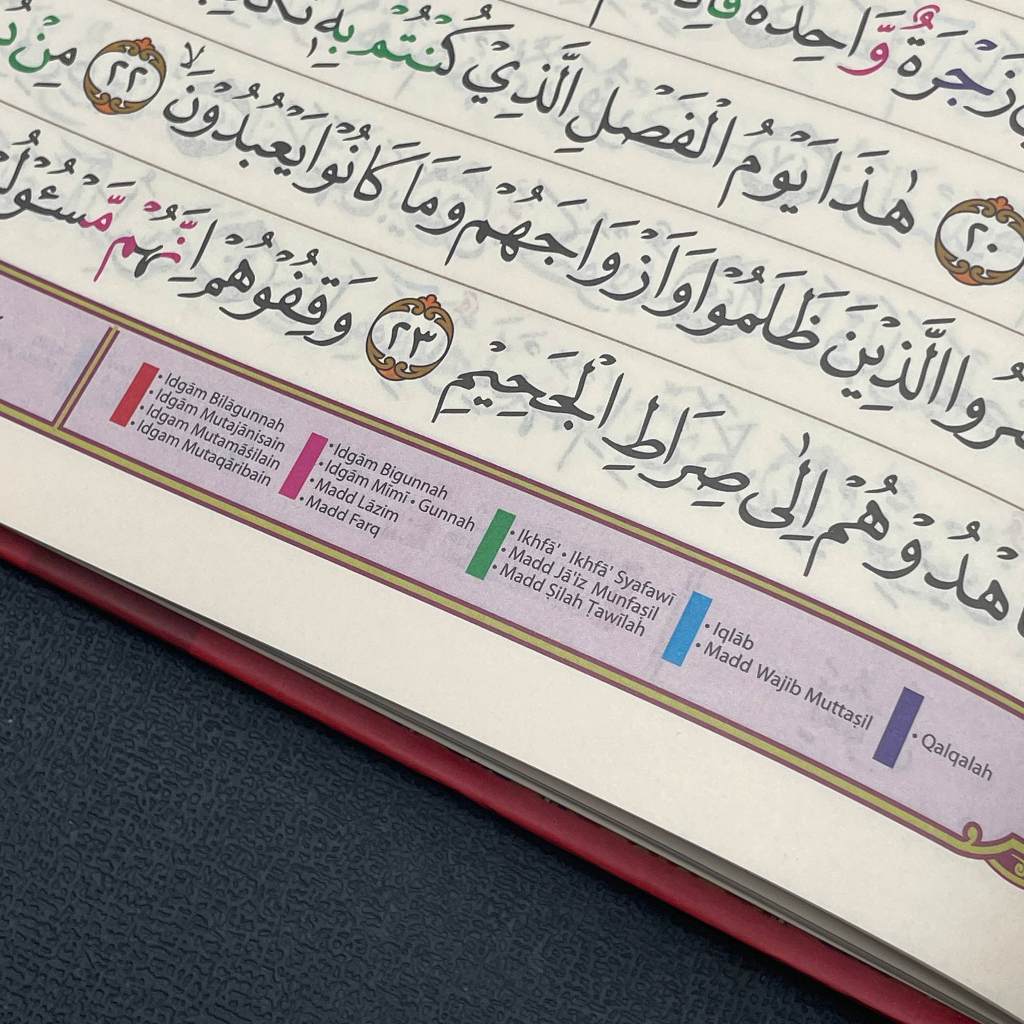 زَجْرَةٌ وَّاحِدَةٌ
٢٠ هٰذَا يَوْمُ الْفَصْلِ الَّذِيْ كُنْتُمْ بِهٖ
الَّذِيْنَ ظَلَمُوْا وَاَزْوَاجَهُمْ وَمَا كَانُوْا يَعْبُدُوْنَۙ ٢٢ مِنْ
اِلٰى صِرَاطِ الْجَحِيْمِ ٢٣ وَقِفُوْهُمْ اِنَّهُمْ
• Idgām Bilāgunnah
• Idgām Mutajānisain
• Idgam Mutamāṡilain
• Idgam Mutaqāribain
• Idgām Bigunnah
• Idgām Mīmī • Gunnah
• Madd Lāzim
• Madd Farq
• Ikhfā' • Ikhfā' Syafawī
• Madd Jā'iz Munfaṣil
• Madd Ṣilah Ṭawīlah
• Iqlāb
• Madd Wajib Muttaṣil
• Qalqalah